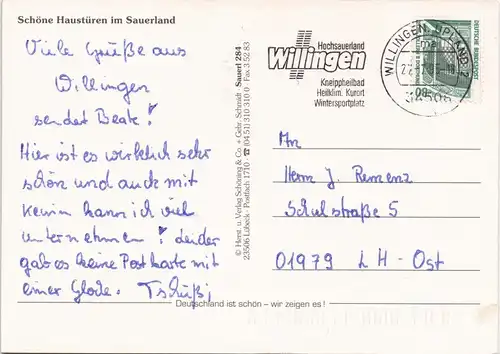 Schöne Haustüren im Sauerland
Viele Grüße aus
Willingen
sendet Beate!
Hier ist es wirklich sehr
schön und auch mit
kann ich viel
unternehmen! Leider
gab es keine Postkarte mit
einer Glocke. Tschüß,
© Herst. u. Verlag Schöning & Co. + Gebr. Schmidt Sauerl 284
23506 Lübeck · Postfach 1710 · ☎ (04 51) 310 310 0 · Fax 3 52 83
Hochsauerland
Willingen
Kneippheilbad
Heilklim. Kurort
Wintersportplatz
WILLINGEN, UPLAND 2
DEUTSCHE BUNDESPOST
An
Herrn J. Remenz
Schulstraße 5
01979 LH-Ost
Deutschland ist schön – wir zeigen es!